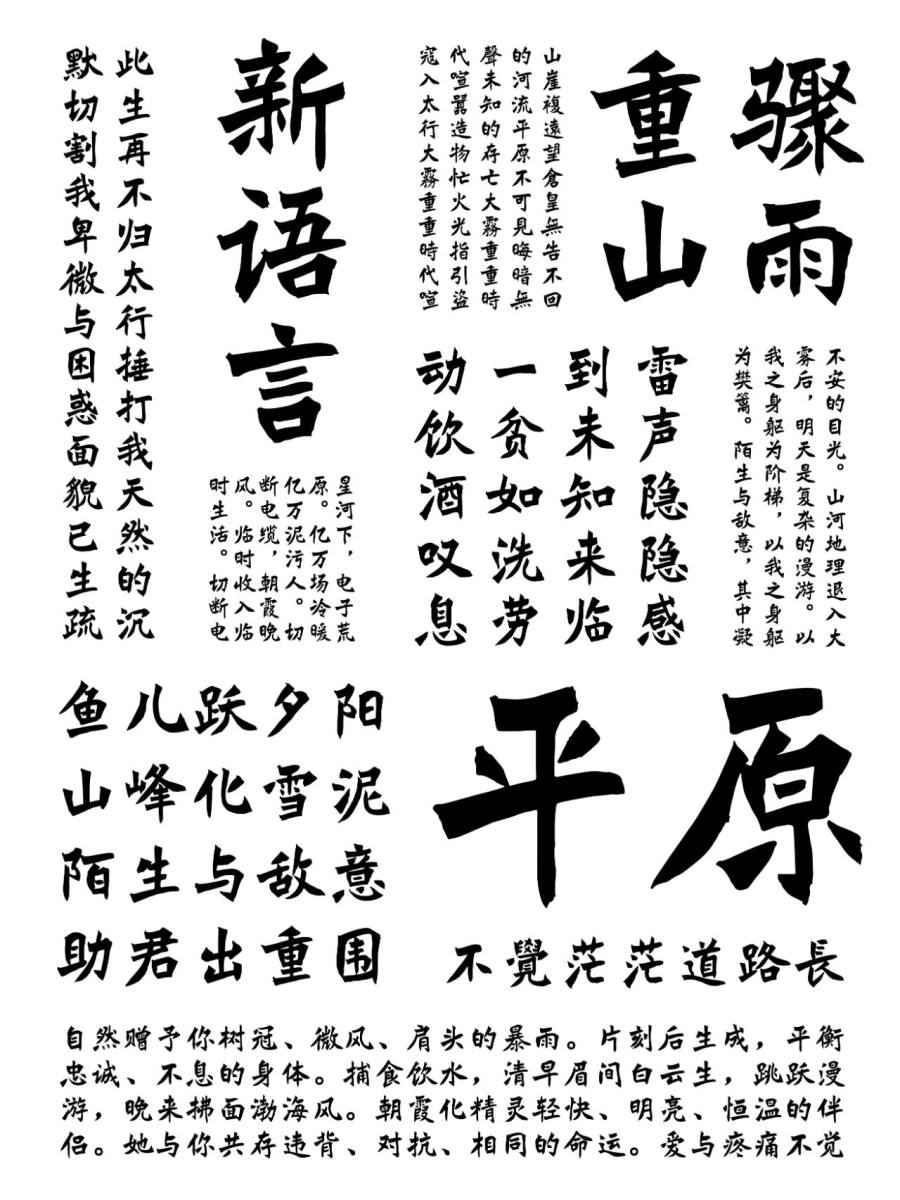 骤雨
重山
山崖複遠望倉皇無告不回
的河流平原不可見晦暗無
聲未知的存七大霧重重時
代喧囂造物忙火光指引盜
寇入太行大霧重重時代喧
新语言
此生再不归太行捶打我天然的沉
默切割我卑微与困惑面貌已生疏
不安的目光。山河地理退入大
雾后，明天是复杂的漫游。以
我之身躯为阶梯，以我之身躯
为樊篱。陌生与敌意，其中凝
雷声隐隐感
到未知来临
一贫如洗劳
动饮酒叹息
星河下，电子荒
原。亿万场冷暖
亿万泥污人。切
断电缆，朝霞晚
风。临时收入临
时生活。切断电
鱼儿跃夕阳
山峰化雪泥
陌生与敌意
助君出重围
平原
不覺茫茫道路長
自然赠予你树冠、微风、肩头的暴雨。片刻后生成，平衡
忠诚、不息的身体。捕食饮水，清早眉间白云生，跳跃漫
游，晚来拂面渤海风。朝霞化精灵轻快、明亮、恒温的伴
侣。她与你共存违背、对抗、相同的命运。爱与疼痛不觉